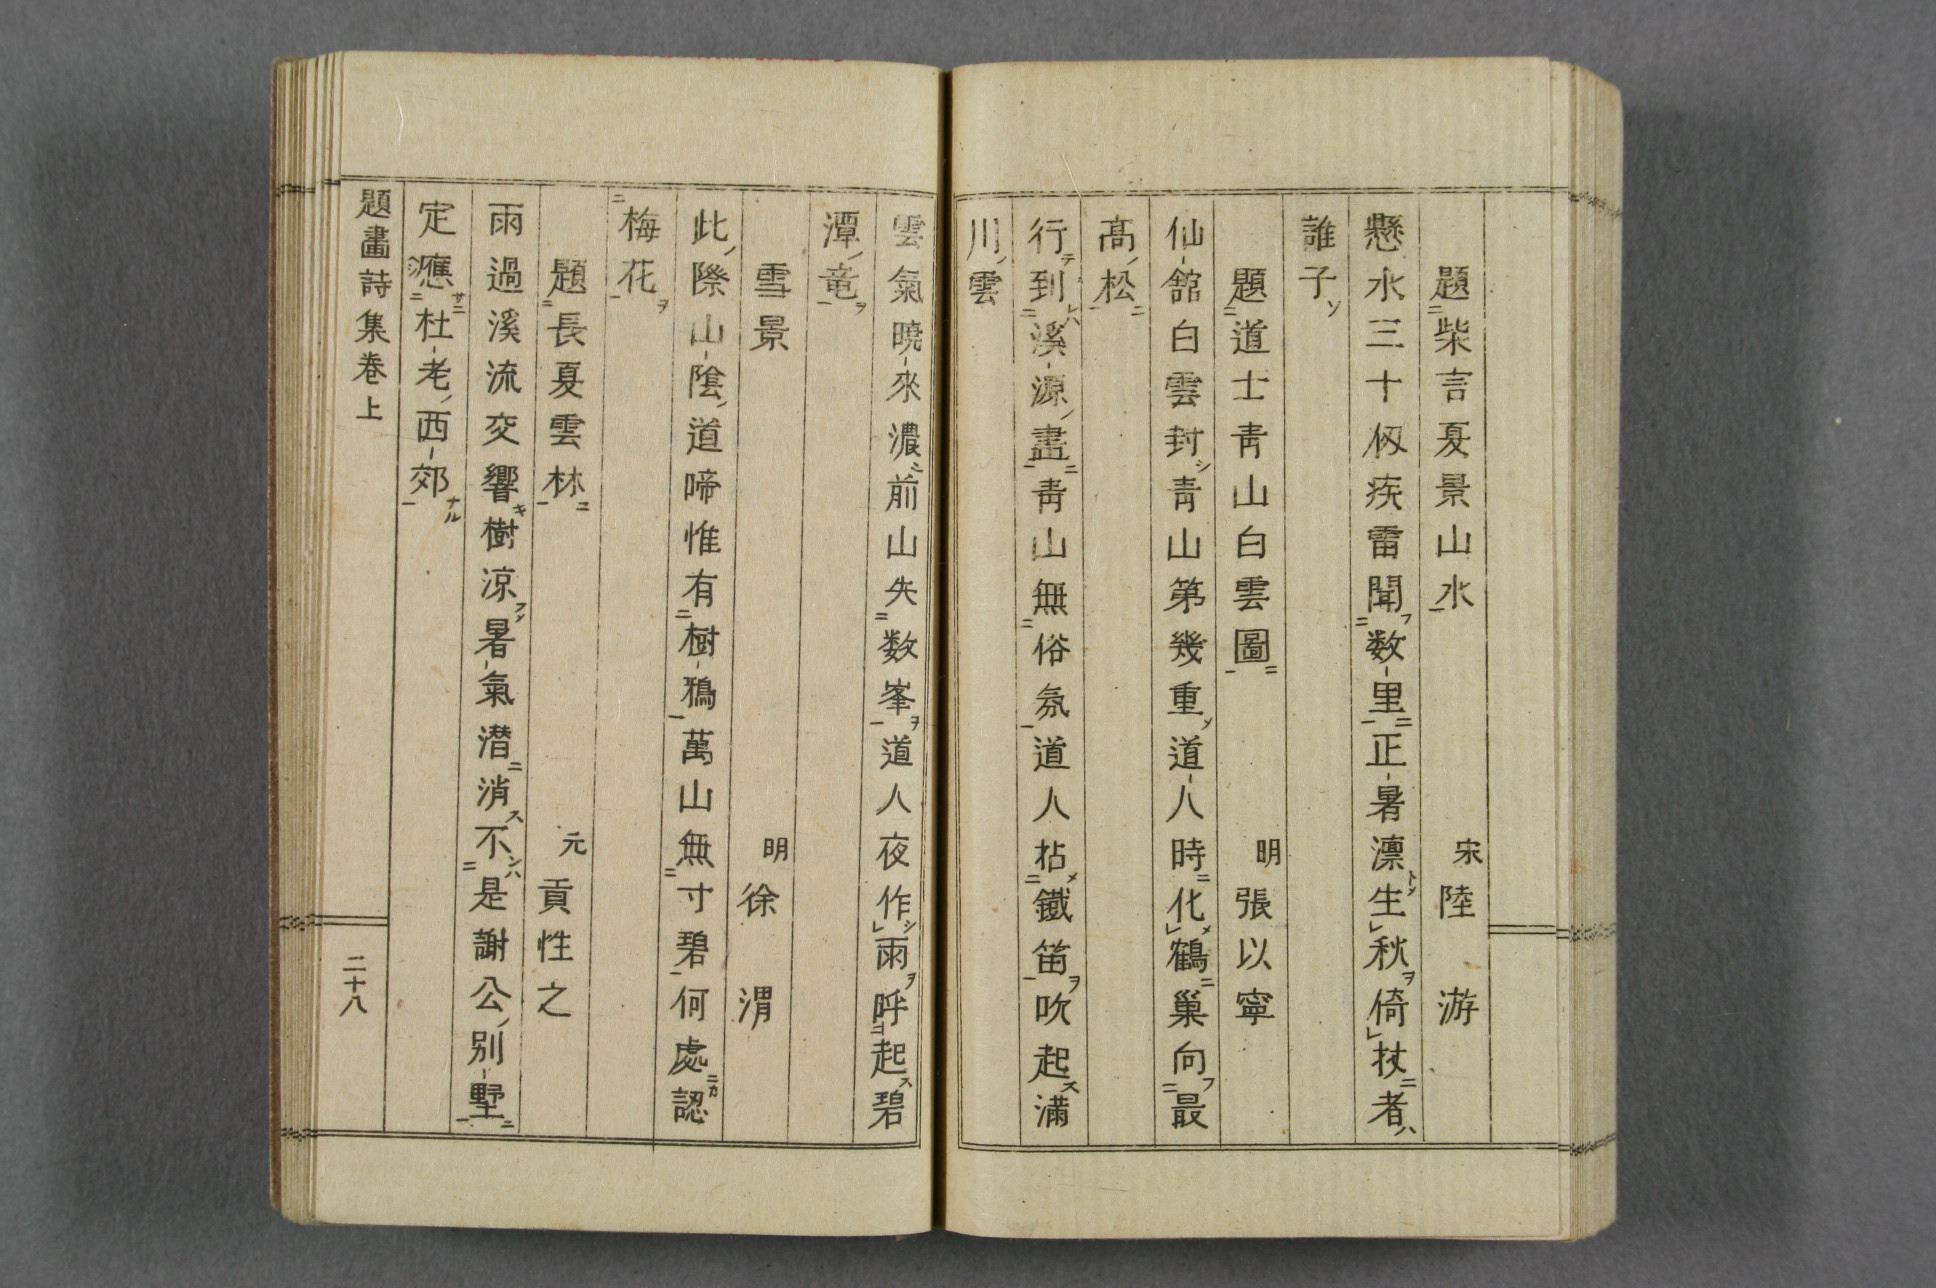 題柴言夏景山水 宋 陸游
懸水三十仭疾雷聞数里正暑凛生秋倚杖者
誰子
題道士青山白雲圖 明 張以寧
仙舘白雲封青山第幾重道人時化鶴巢向最
高松
行到溪源盡青山無俗氛道人拈鐵笛吹起滿
川雲
雲氣曉來濃前山失数峯道人夜作雨呼起碧
潭竜
雪景 明 徐渭
此際山陰道啼惟有樹鴉萬山無寸碧何處認
梅花
題長夏雲林 元 貢性之
雨過溪流交響樹凉暑氣潜消不是謝公別墅
定應杜老西郊
題畫詩集卷上 二十八